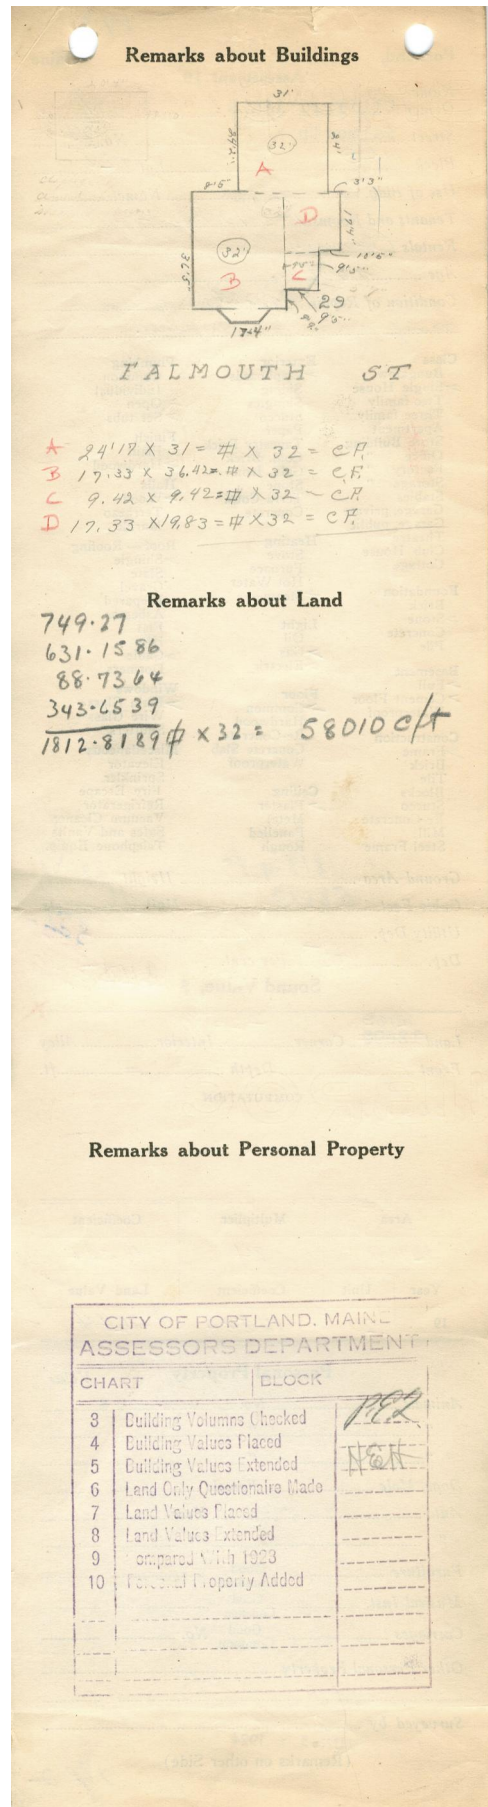 Remarks about Buildings
31'
24'2"
32'
34'
A
8'5"
3'3"
D
19'4"
32'
36'5"
B
C
10'6"
9'5"
29
9'5"
17'4"
FALMOUTH ST
A 24'17 X 31 = # X 32 = C.F.
B 17.33 X 36.42 = # X 32 = C.F.
C 9.42 X 9.42 = # X 32 – C.F.
D 17.33 X 19.83 = # X 32 = C F.
Remarks about Land
749.27
631.1586
88.7364
343.6539
1812.8189 # x 32 = 58010 c/ft
Remarks about Personal Property
CITY OF PORTLAND, MAINE
ASSESSORS DEPARTMENT
CHART BLOCK
3 Building Volumns Checked
4 Building Values Placed
5 Building Values Extended
6 Land Only Questionaire Made
7 Land Values Placed
8 Land Values Extended
9 Compared With 1923
10 Personal Property Added